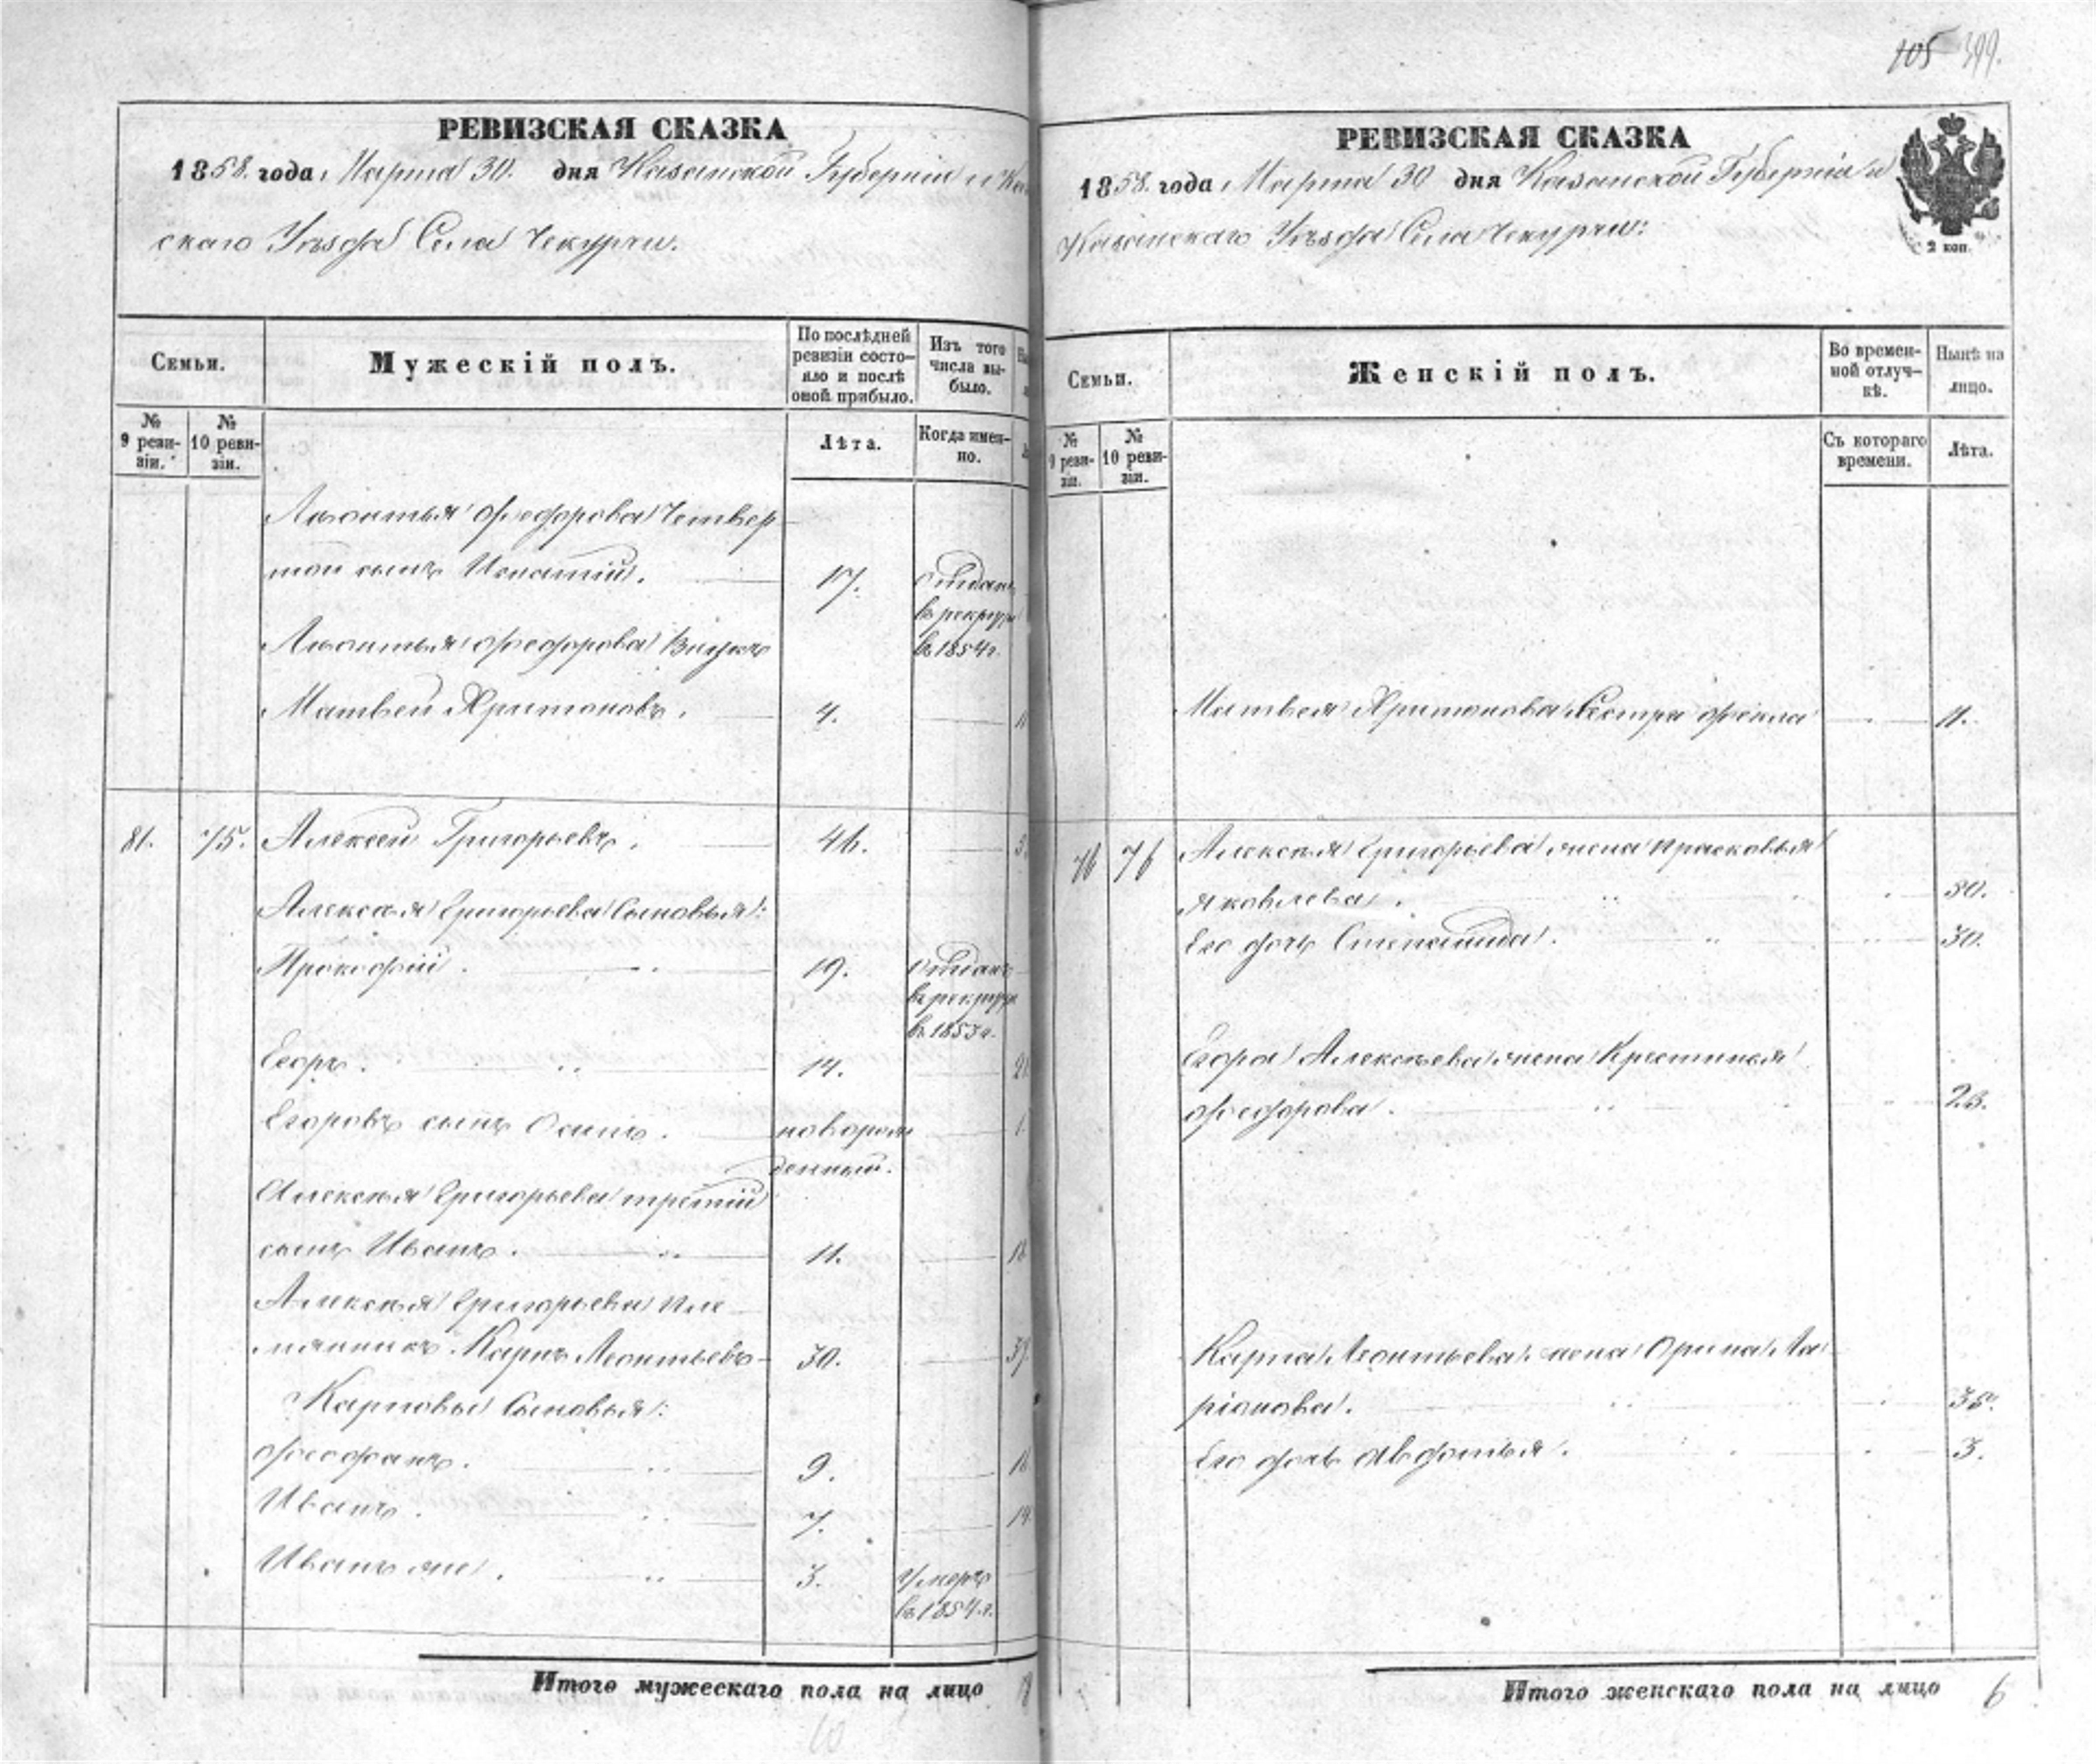 105 399.
РЕВИЗСКАЯ СКАЗКА
1858. года, Марта 30. дня Казанской Губерніи и Каза
скаго Уѣзда Села Чекурчи.
Семьи.
Мужескій полъ.
По послѣдней ревизіи состо-
яло и послѣ
оной прибыло.
Изъ того
числа вы-
было.
№
9 реви-
зіи.
№
10 реви-
зіи.
Лѣта.
Когда имен-
но.
Леонтья Федорова четвер
той сынъ Игнатій. 17. отданъ
в рекруты
в 1854 г.
Леонтья Федорова внукъ
Матвей Харитоновъ. 4.
81. 75. Алексей Григорьевъ. 46.
Алексея Григорьева сыновья:
Прокофій. 19. отданъ
в рекруты
в 1853 г.
Егоръ. 14.
Егоровъ сынъ Осипъ. новорож
денный.
Алексея Григорьева третій
сынъ Иванъ. 11.
Алексея Григорьева пле
мянникъ Карпъ Леонтьевъ 30.
Карповы сыновья:
Феофанъ. 9.
Иванъ. 7.
Иванъ же. 3. умеръ
въ 1854 г.
Итого мужескаго пола на лицо
10
РЕВИЗСКАЯ СКАЗКА
1858. года, Марта 30 дня Казанской Губерніи и
Казанскаго Уѣзда Села Чекурчи:
2 коп.
Семьи.
Женскій полъ.
Во времен-
ной отлуч-
кѣ.
Нынѣ на
лицо.
№
9 реви-
зіи.
№
10 реви-
зіи.
Съ котораго
времени.
Лѣта.
Матвея Харитонова сестра Фекла 11.
76 76 Алексея Григорьева жена Прасковья
Яковлева. 50.
Его дочь Степанида. 30.
Егора Алексѣева жена Крестинья
Федорова. 23.
Карпа Леонтьева жена Орина Ла
ріонова. 35.
Его дочь Авдотья. 3.
Итого женскаго пола на лицо 6